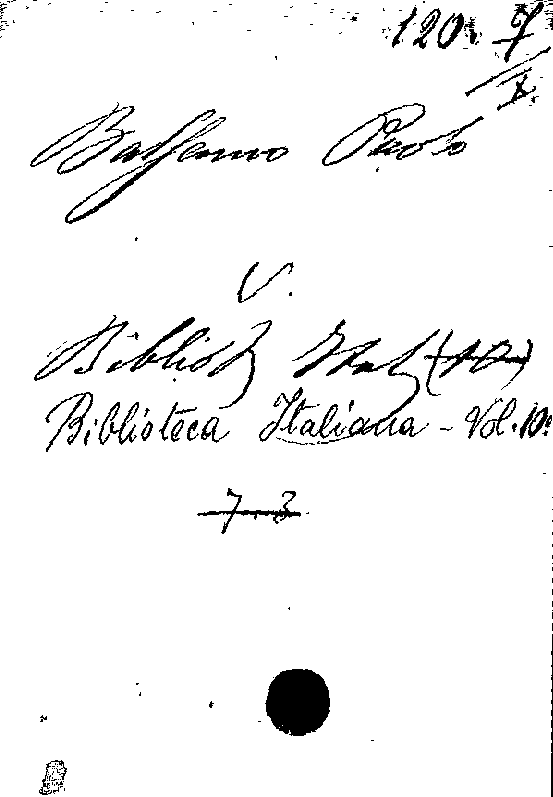 120. 7/X.
Balsamo Paolo
V.
Bibliot. Ital. (10)
Biblioteca Italiana - Vol. 10º
7.3